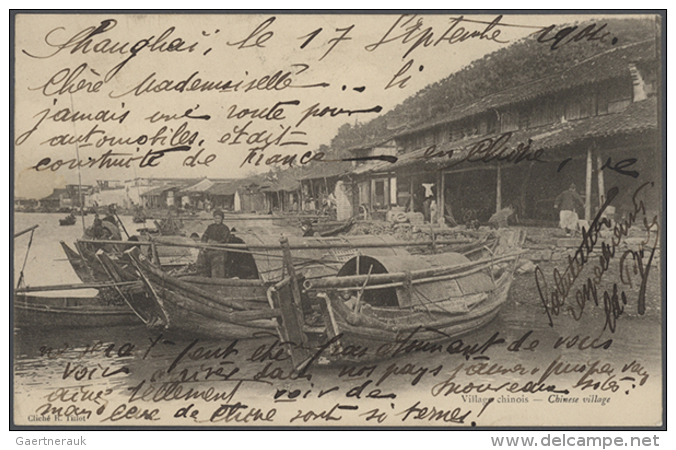 Shanghaï, le 17 Septembre 1904.
Chère Mademoiselle... Si
jamais une route pour
automobiles, était
construite de France — en Chine, ce
n'serait peut être pas étonnant de vous
voir arriver dans nos pays jaunes, puisque vous
aimez tellement voir de nouveaux sites,
mais ceux de Chine sont si ternes!
Salutations
Village chinois — Chinese village
Cliché R. Tillot
Gaertnerauk
www.delcampe.net